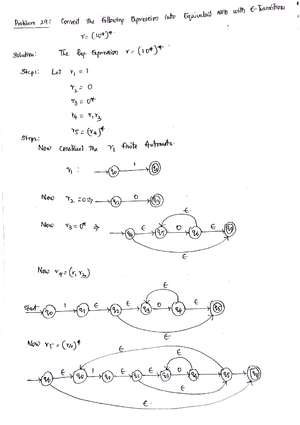 Problem 29: Convert the following Expression into Equivalent NFA with ε-Transitions
r = (10*)*
Solution: The Reg Expression r = (10*)*
Step1: Let r₁ = 1
r₂ = 0
r₃ = 0*
r₄ = r₁r₃
r₅ = (r₄)*
Step2:
Now construct the r₁ finite Automata.
r₁ : q₀ 1
Now r₂ = 0 ⇒ 0
Now r₃ = 0* ⇒ ε 0 ε
ε
ε
Now r₄ = (r₁ r₃)
ε
Start q₀ 1 q₁ ε q₂ ε q₃ 0 q₄ ε q₅
ε
Now r₅ = (r₄)*
ε
ε
ε q₀ 1 q₁ ε ε 0 ε q₅ ε
ε
ε